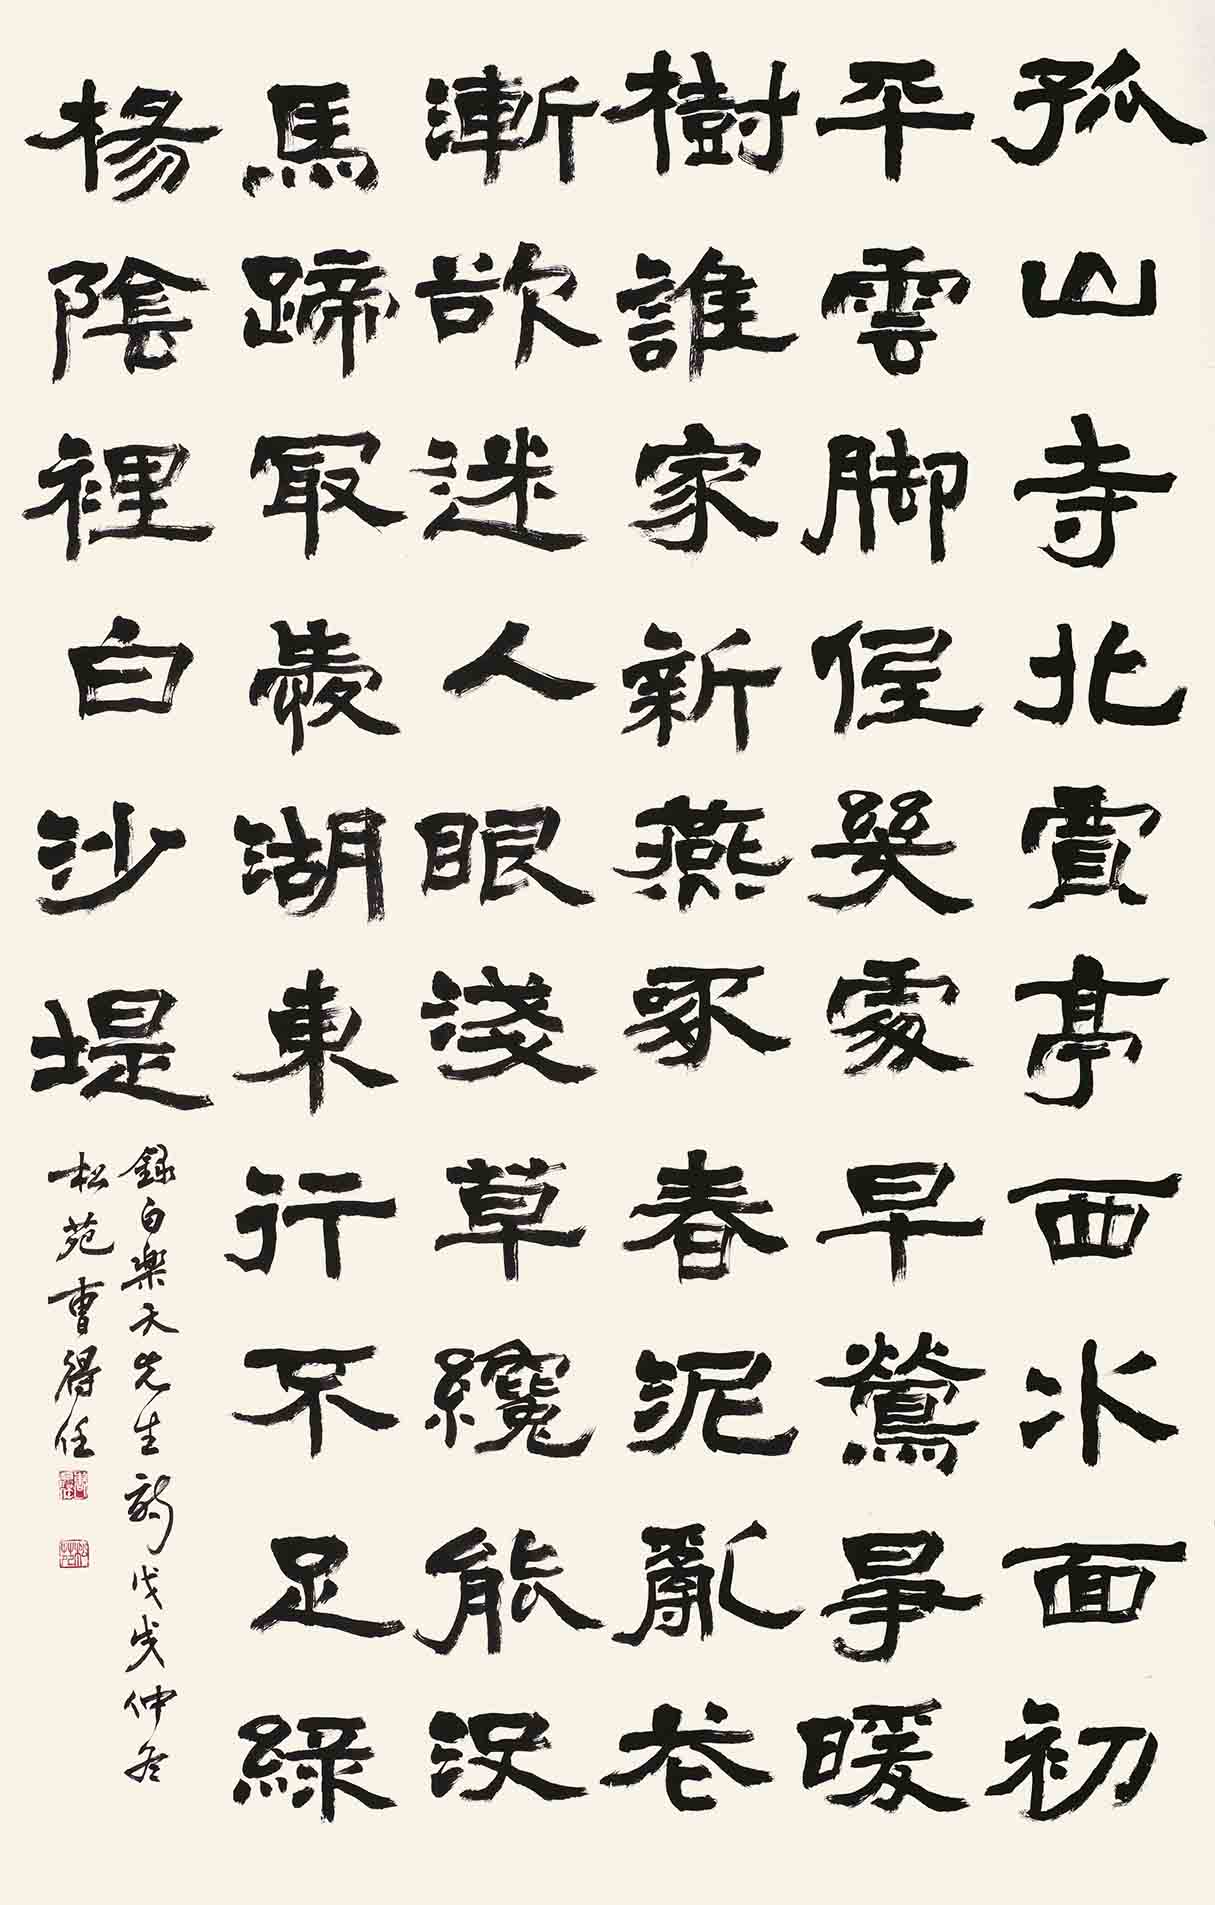 孤山寺北賈亭西水面初
平雲脚低幾處早鶯爭暖
樹誰家新燕啄春泥亂花
漸欲迷人眼淺草纔能没
馬蹄冣愛湖東行不足綠
楊陰裡白沙堤
錄白樂天先生詩戊戌仲冬
松苑曹得任